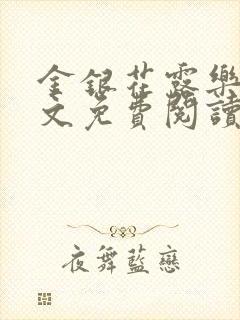 金銀花露樂
文免費閱讀
夜舞藍戀